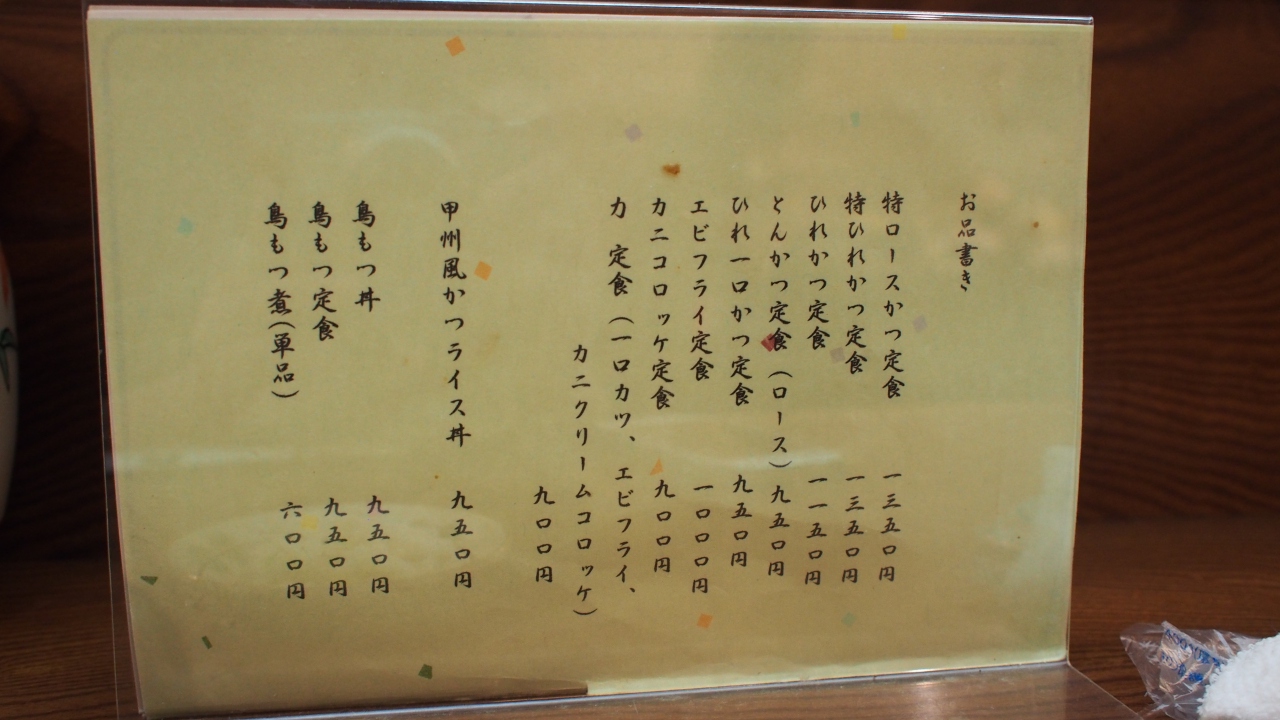 お品書き
特ロースかつ定食 一三五〇円
特ひれかつ定食 一三五〇円
ひれかつ定食 一一五〇円
とんかつ定食（ロース）九五〇円
ひれ一口かつ定食 九五〇円
エビフライ定食 一〇〇〇円
カニコロッケ定食 九〇〇円
力 定食（一口カツ、エビフライ、
カニクリームコロッケ）
九〇〇円
甲州風かつライス丼 九五〇円
鳥もつ丼 九五〇円
鳥もつ定食 九五〇円
鳥もつ煮（単品） 六〇〇円